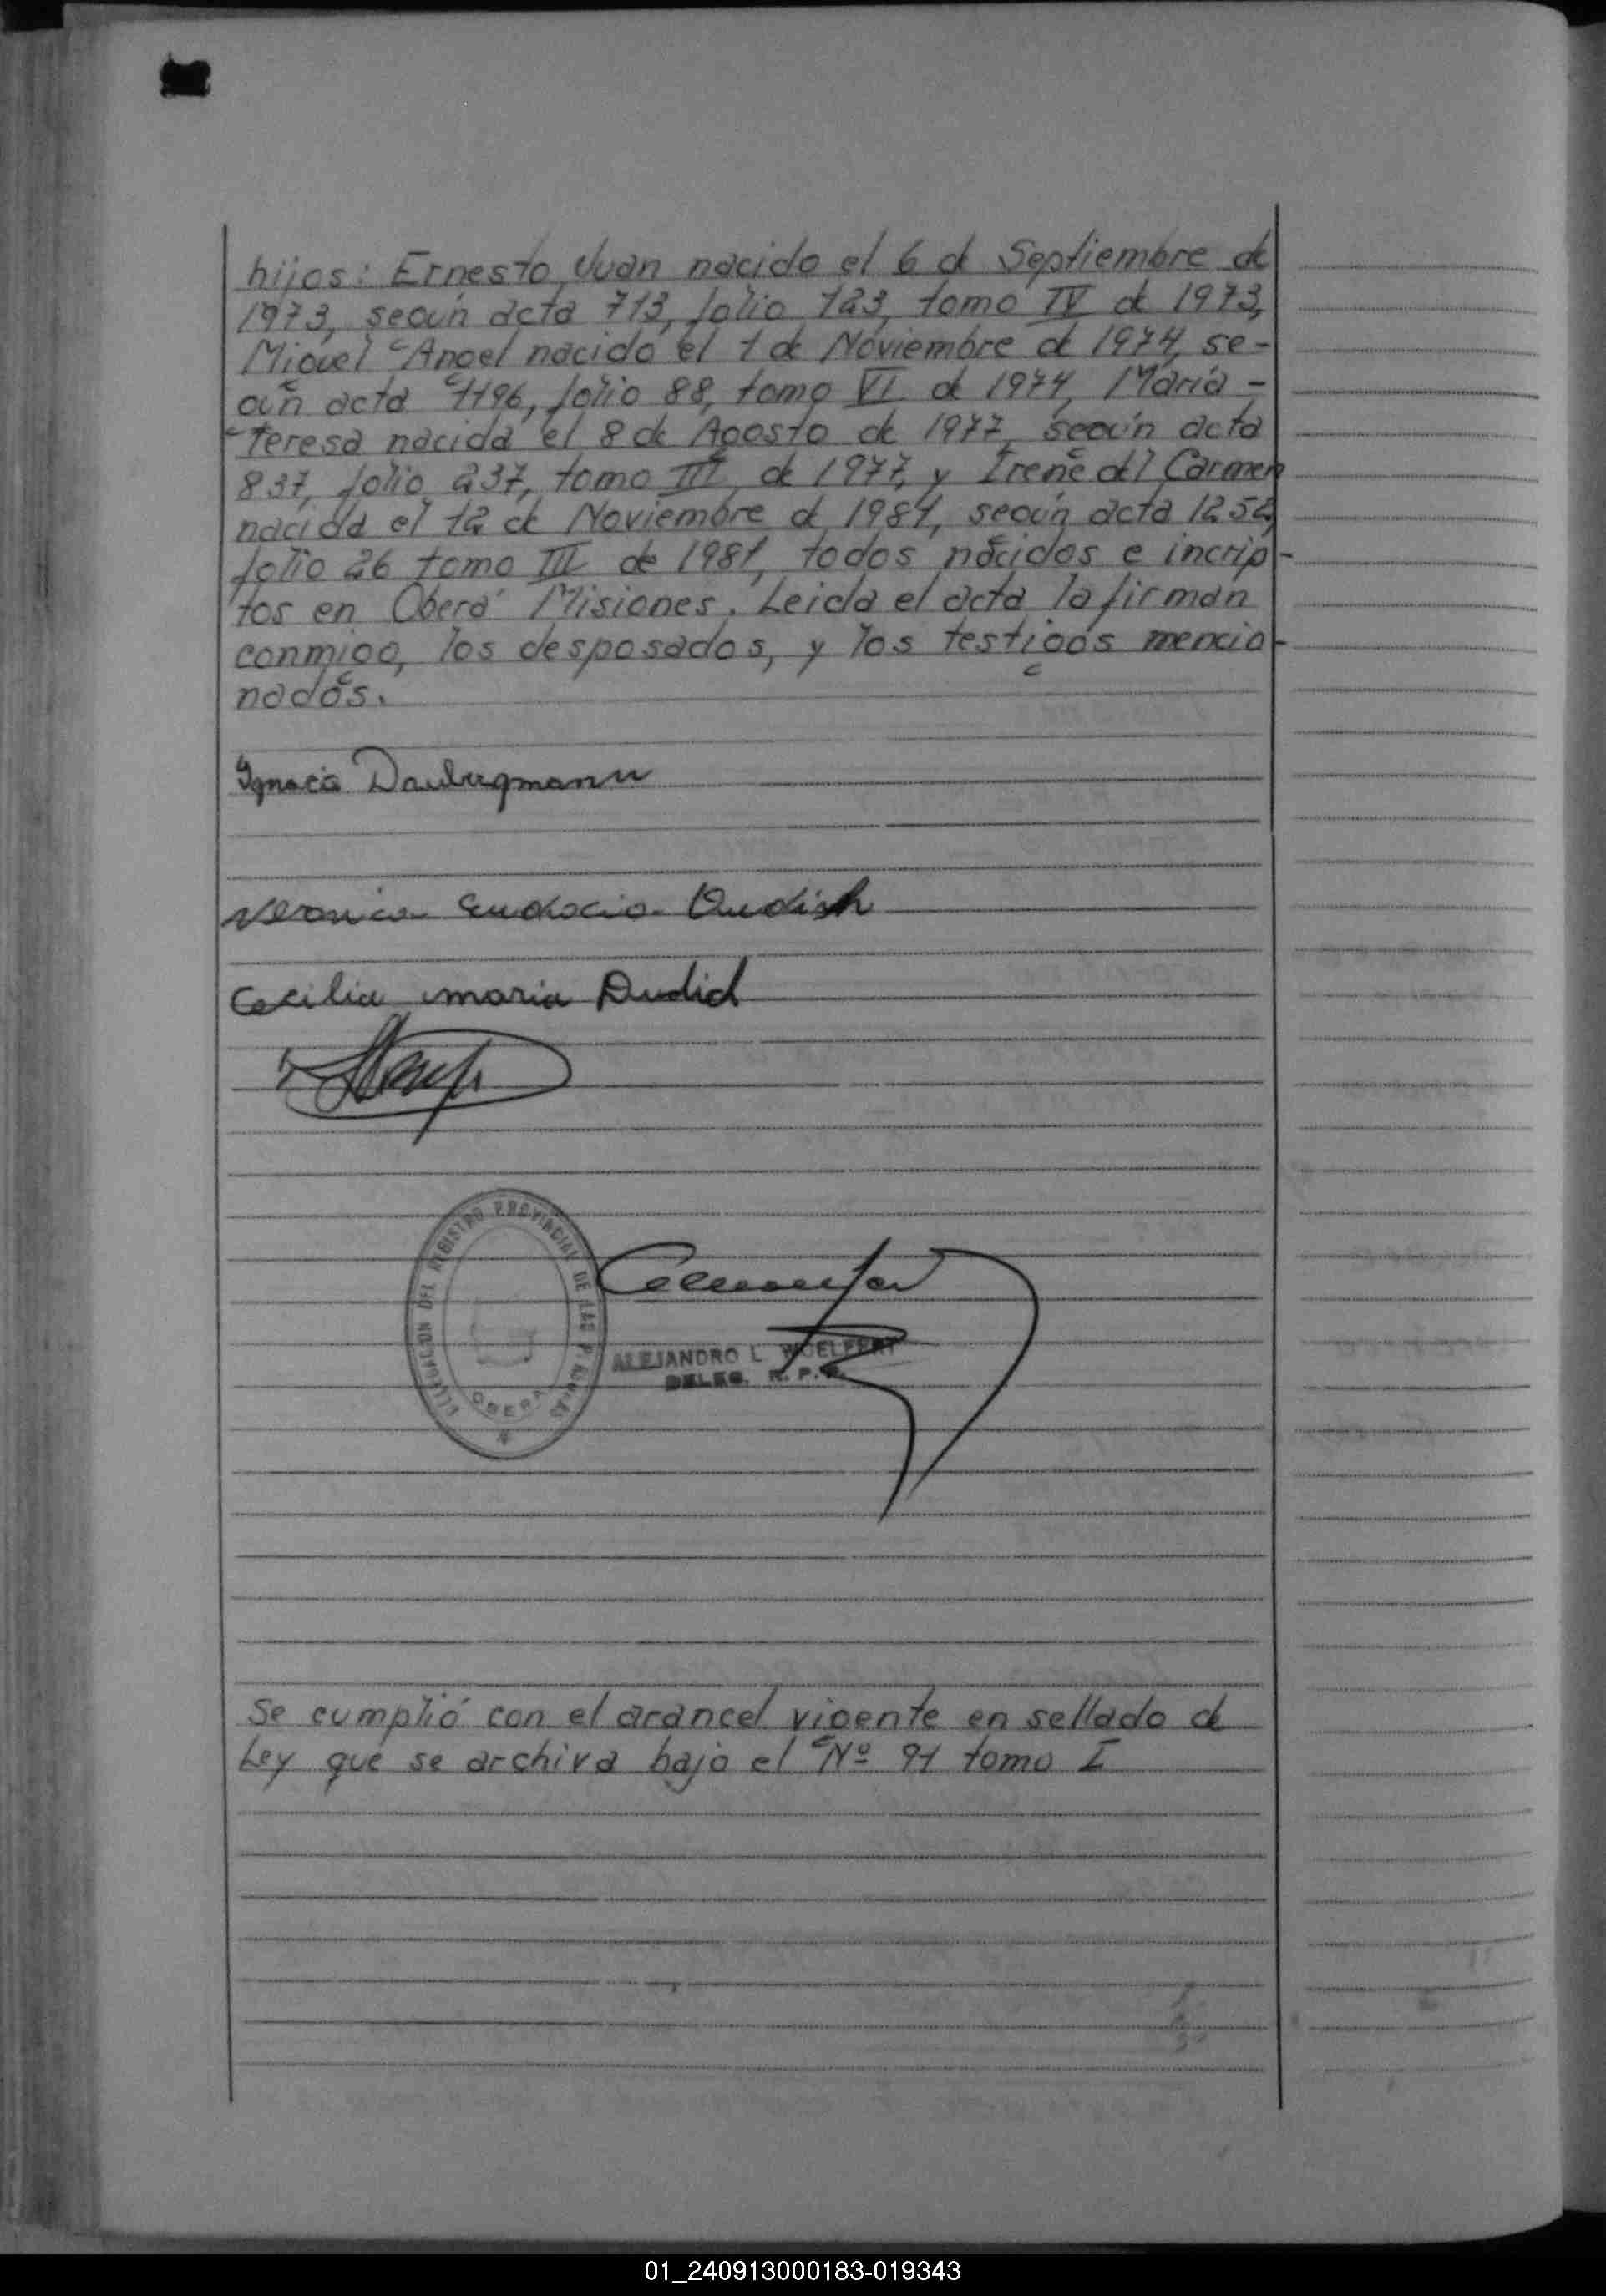 hijos: Ernesto Juan nacido el 6 de Septiembre de
1973, según acta 713, folio 123, tomo IV de 1973,
Miguel Angel nacido el 1 de Noviembre de 1974, se-
gún acta 1196, folio 88, tomo VI de 1974, María -
Teresa nacida el 8 de Agosto de 1977, según acta
837, folio 237, tomo III de 1977, y Irene del Carmen
nacida el 12 de Noviembre de 1981, según acta 1252,
folio 26 tomo III de 1981, todos nacidos e incrip-
tos en Oberá Misiones. Leida el acta la firman
conmigo, los desposados, y los testigos mencio-
nados.
Ignacio
Veronica Eudocia
Cecilia maria Dudich
DELEGACION DEL REGISTRO PROVINCIAL DE LAS PERSONAS
OBERA
ALEJANDRO L. WOELFERT
DELEG. R. P. P.
Se cumplió con el arancel vigente en sellado de
Ley que se archiva bajo el Nº 91 tomo I
01_240913000183-019343